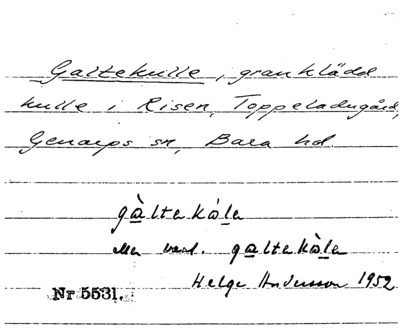 Galtekulle, granklädd
kulle i Risen, Toppeladugård,
Genarps sn, Bara hd
gàltekóle
galtekòle
Helge Andersson 1952
Nr 5531.